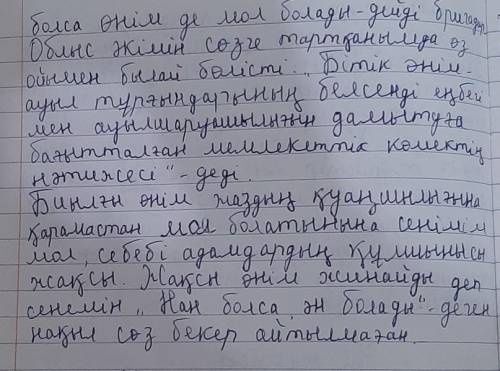 болса өнім де мол болады - дейді бригадир
Облыс әкімін сөзге тартқанымда өз
ойымен былай бөлісті. „Бітік өнім-
ауыл тұрғындарының белсенді еңбегі
мен ауылшаруашылығын дамытуға
бағытталған мемлекеттік көмектің
нәтижесі" - деді.
Биылғы өнім жаздың қуаңшылығына
қарамастан мол болатынына сенімім
мол, себебі адамдардың құлшынысы
жақсы. Жақсы өнім жинайды деп
сенемін „Нан болса, ән болады" - деген
нақыл сөз бекер айтылмаған.